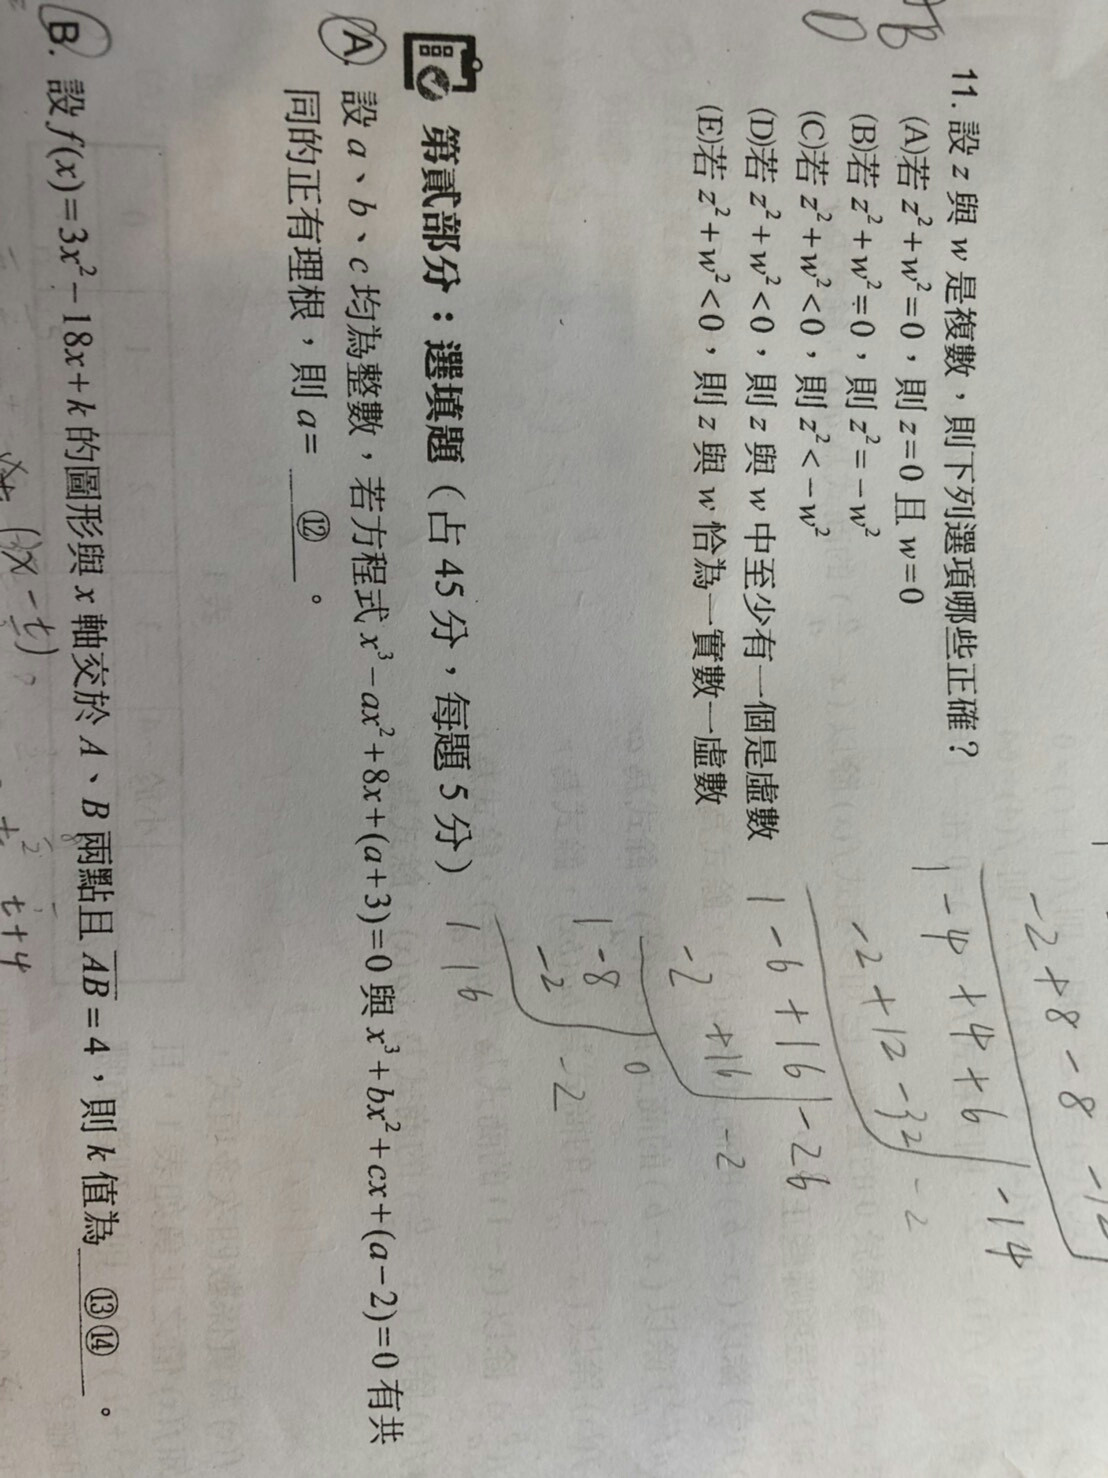 B
D
11. 設 z 與 w 是複數，則下列選項哪些正確？
(A)若 z²+w²=0，則 z=0 且 w=0
(B)若 z²+w²=0，則 z²=−w²
(C)若 z²+w²<0，則 z²<−w²
(D)若 z²+w²<0，則 z 與 w 中至少有一個是虛數
(E)若 z²+w²<0，則 z 與 w 恰為一實數一虛數
-2+8-8
1-4+4+6|-14
-2+12-32 -2
1-6+16|-26
-2 +16 -2
1-8 0
-2 -2
1 16
第貳部分：選填題（占 45 分，每題 5 分）
A. 設 a、b、c 均為整數，若方程式 x³−ax²+8x+(a+3)=0 與 x³+bx²+cx+(a−2)=0 有共
同的正有理根，則 a= ⑫ 。
B. 設 f(x)=3x²−18x+k 的圖形與 x 軸交於 A、B 兩點且 AB=4，則 k 值為 ⑬⑭ 。
t+4